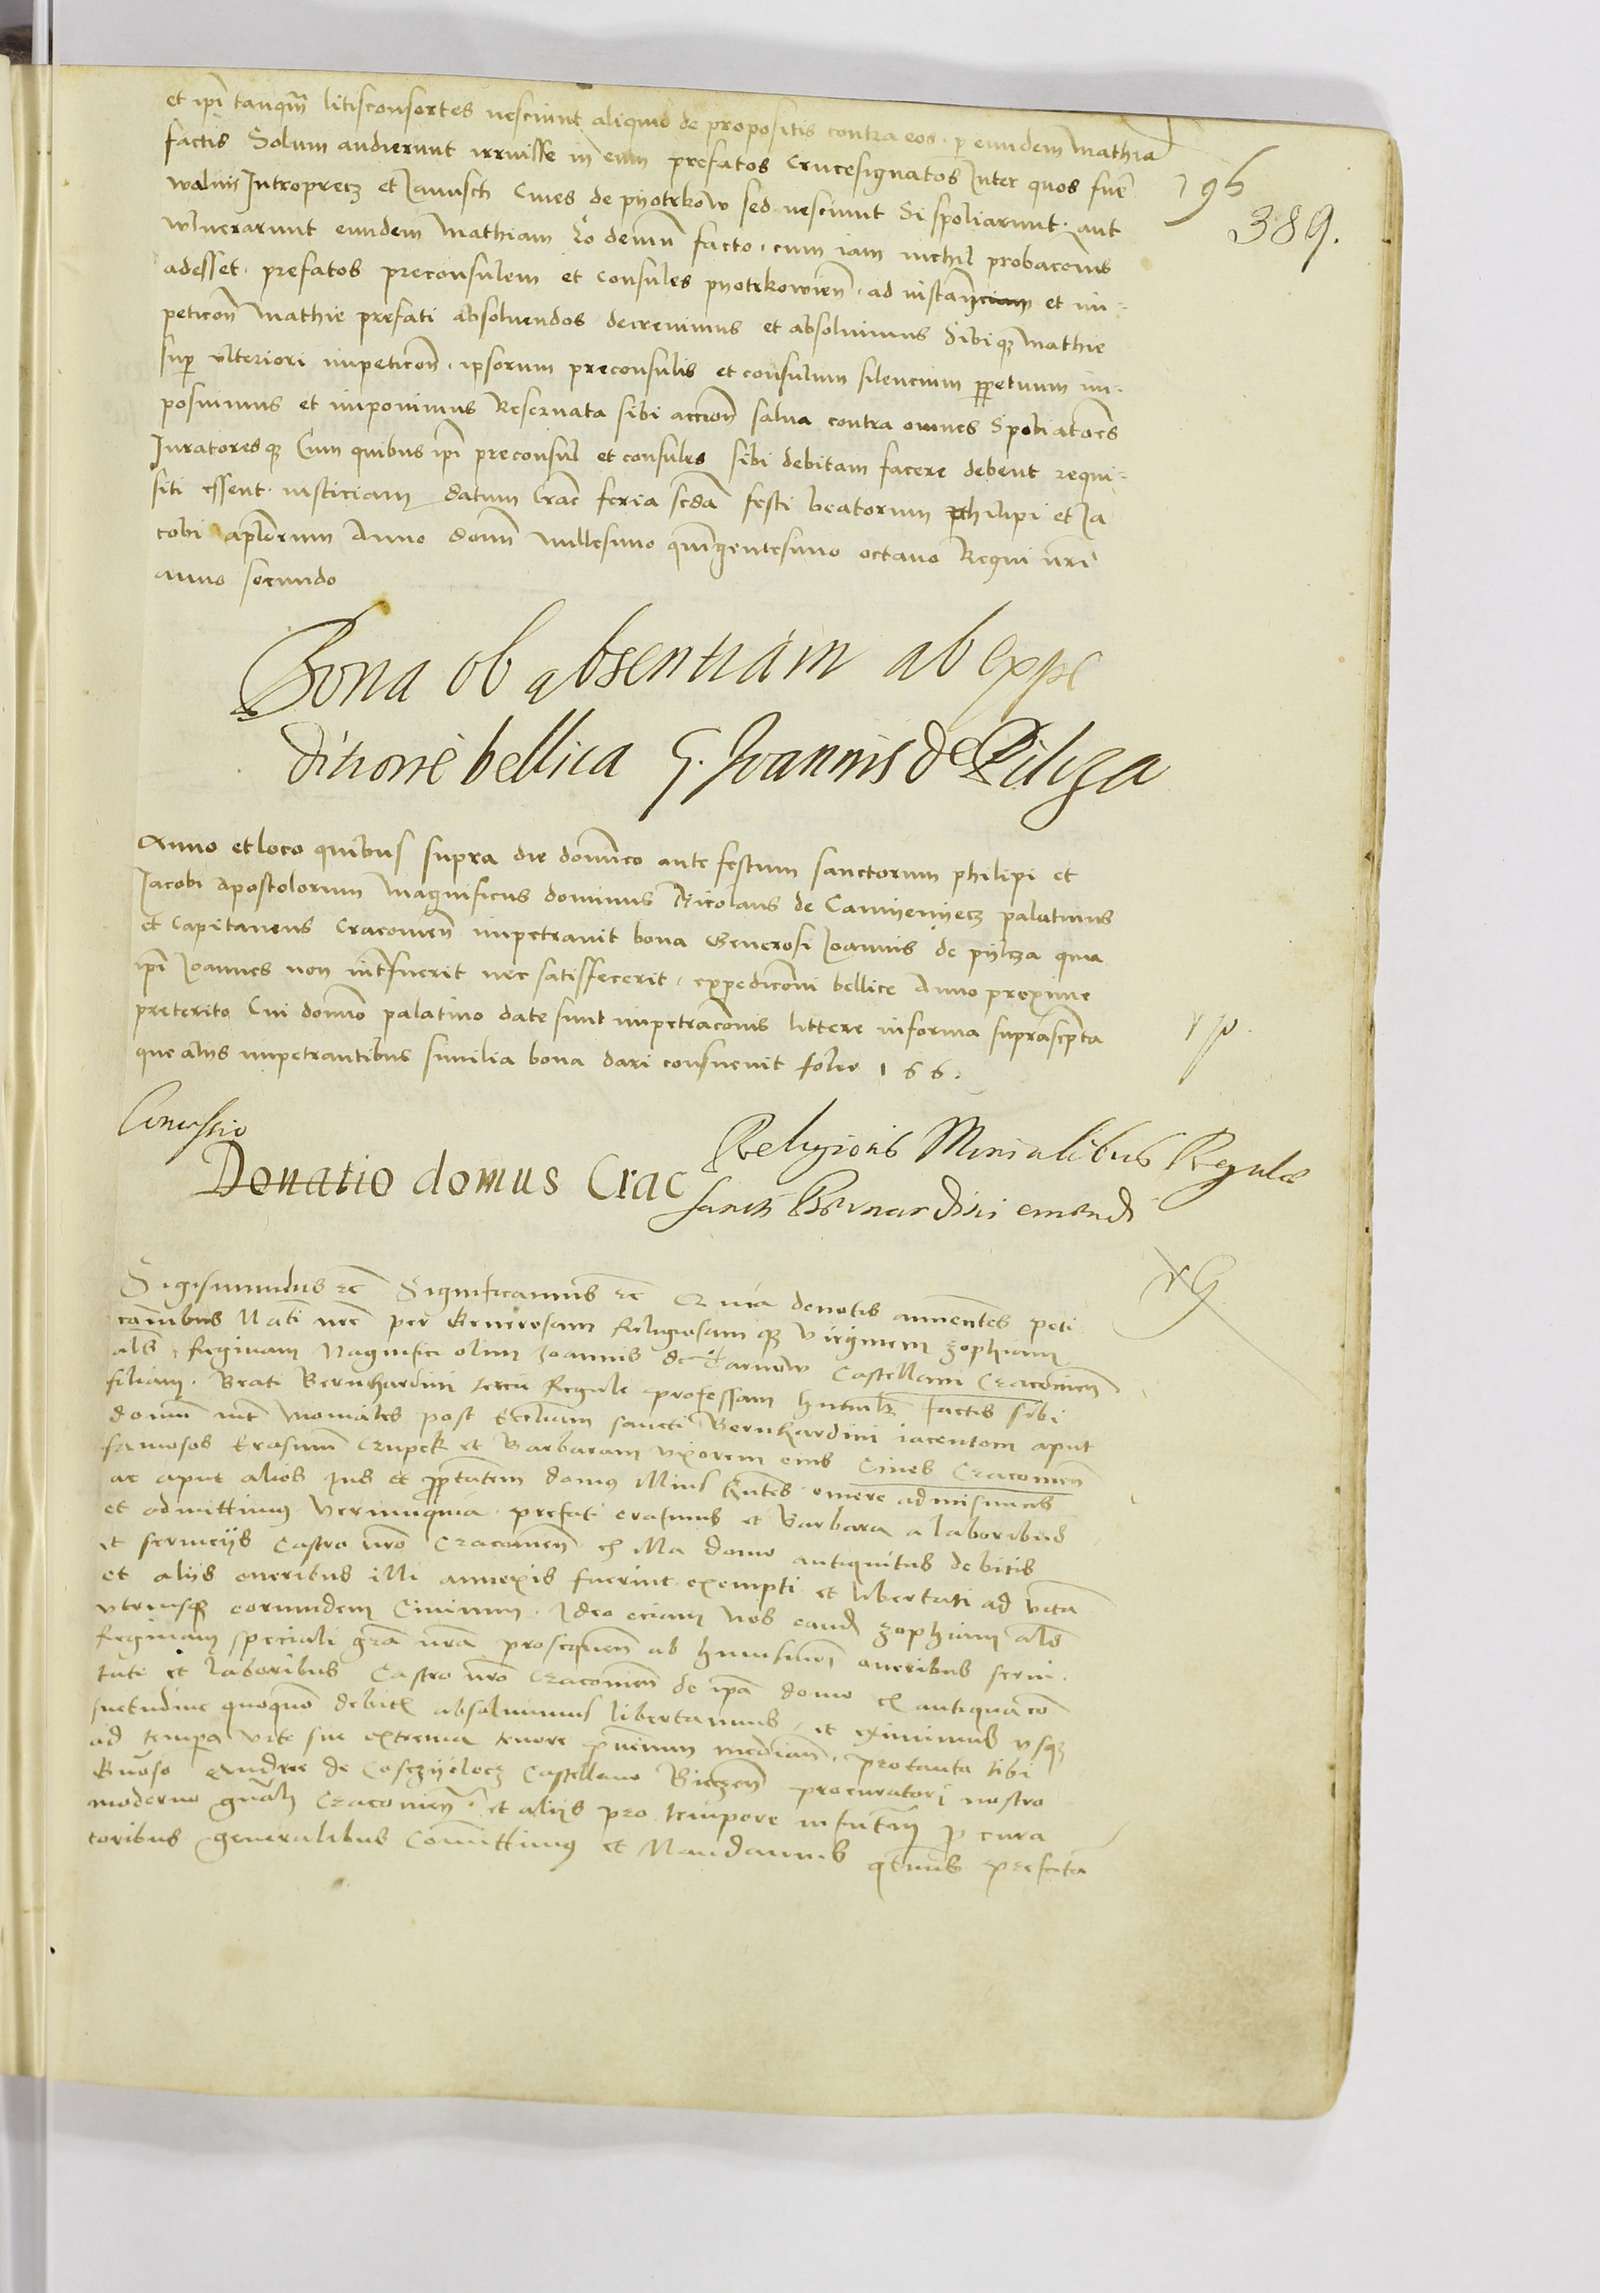 et ipi tanqm litisconsortes nesciunt aliquid de propositis contra eos p eundem Mathia
factis Solum audierunt irruisse in eum prefatos Crucesignatos Inter quos fuer
196
389.
walnis Introprecz et Janusch Cives de pyotrkow sed nesciunt Si spoliarunt aut
wlnerarunt eundem Mathiam Eo demu facto cum iam nichil probaconis
adesset prefatos preconsulem et Consules pyotrkowien ad instanciam et im-
peticon Mathie prefati absoluendos decreuimus et absoluimus Sibiq Mathie
sup vlteriori impeticon ipsorum preconsulis et consulum silencium ppetuum im-
posuimus et imponimus Reseruata sibi accion salua contra omnes Spoliatoes
Iuratoresq Cum quibus ipi preconsul et consules sibi debitam facere debent requi-
siti essent iusticiam datum Crac feria scda festi beatorum Philipi et Ja
cobi aplorum Anno domi millesimo quingentesimo octauo Regni nri
anno secundo
Bona ob absentiam ab expe
ditione bellica G. Joannis de Pilcza
Anno et loco quibus supra die dominico ante festum sanctorum philipi et
Jacobi apostolorum Magnificus dominus Nicolaus de Camyenyecz palatinus
et Capitaneus Cracouien impetrauit bona Generosi Joannis de pylcza quia
ipe Joannes non intfuerit nec satisfecerit expediconi bellice Anno proxime
preterito Cui domno palatino date sunt impetraconis littere in forma suprascpta
que aliis impetrantibus similia bona dari consueuit folio 166.
Concessio
Donatio domus Crac Religiosis Monialibus Regulae
sancti Bernardini emendi
Sigismundus etc Significamus etc Quia deuotis annuentes peti
conibus Nati nre per Generosam Religiosamq virginem zophiam
als Reginam Magnifici olim Joannis de Tarnow Castellani Cracouien
filiam Beati Bernhardini tercii Regule professam humilr factis sibi
domum int moniales post Eccliam sancti Bernhardini iacentem aput
famosos Erasmum Czupek et Barbaram vxorem eius Ciues Cracouien
ac aput alios ius et pprietatem domus illius hntes emere admisimus
et admittimus Verumquia prefati erasmus et Barbara a laboribus
et seruiciis Castro nro Cracouien ex illa domo antiquitus debitis
et aliis oneribus illi annexis fuerint exempti et libertati ad vita
vtriusq eorundem Ciuium Ideo eciam nos eand zophiam als
Reginam speciali gra nra prosequen ab huiusmoi oneribus serui-
tute et laboribus Castro nro Cracouien de ipa domo ex antiqua con
suetudine quoquo debitis absoluimus libertamus et eximimus vsq
ad tempa vite sue extrema tenore pntium mediant protanto tibi
Gnoso Andree de Coscyelecz Castellano Biecen procuratori nostro
moderno gnali Cracouien et aliis pro tempore infutura p cura
toribus generalibus Comittimus et Mandamus qtinus prefata